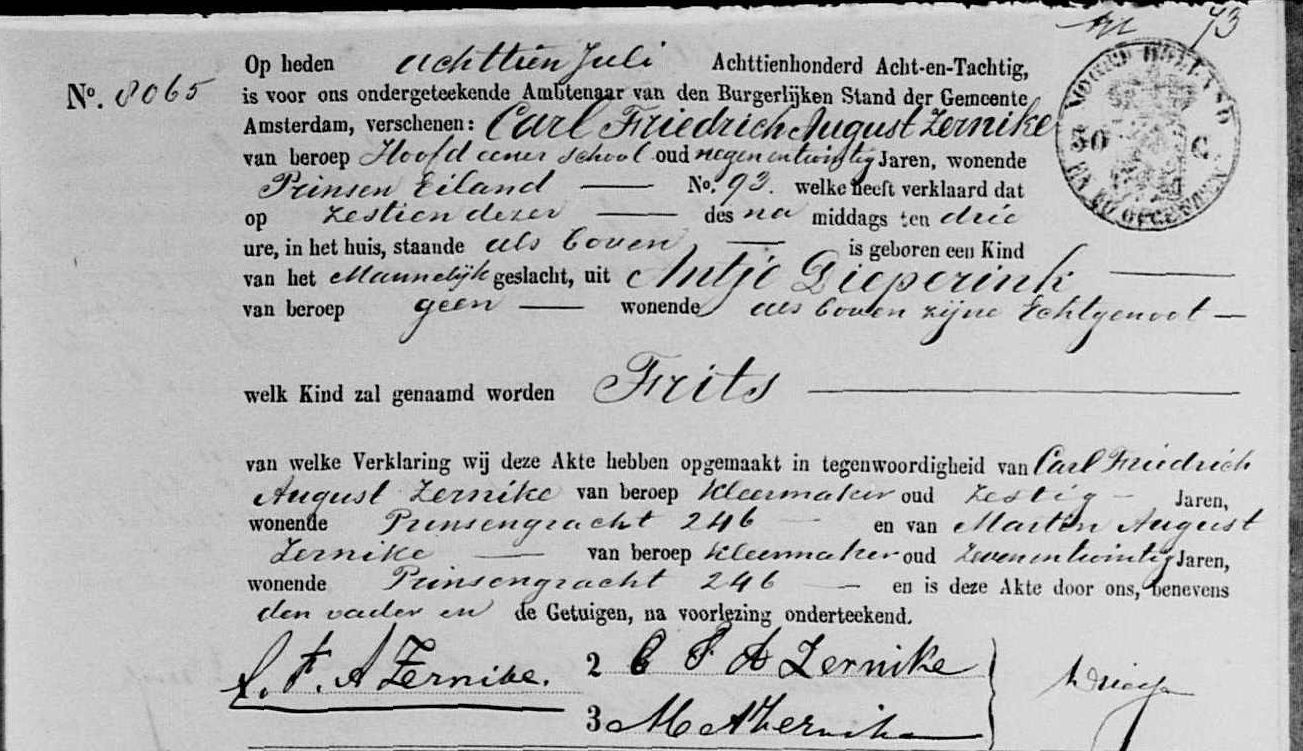 73
Op heden achttien Juli Achttienhonderd Acht-en-Tachtig,
No. 8065
is voor ons ondergeteekende Ambtenaar van den Burgerlijken Stand der Gemeente
Amsterdam, verschenen: Carl Friedrich August Zernike
van beroep Hoofd eener school oud negenentwintig Jaren, wonende
Prinsen Eiland No. 93. welke heeft verklaard dat
op zestien dezer des na middags ten drie
ure, in het huis, staande als boven is geboren een Kind
van het Mannelijk geslacht, uit Antje Dieperink
van beroep geen wonende als boven zijne Echtgenoot
welk Kind zal genaamd worden Frits
van welke Verklaring wij deze Akte hebben opgemaakt in tegenwoordigheid van Carl Friedrich
August Zernike van beroep Kleermaker oud zestig Jaren,
wonende Prinsengracht 246 en van Martin August
Zernike van beroep Kleermaker oud zevenentwintig Jaren,
wonende Prinsengracht 246 en is deze Akte door ons, benevens
den vader en de Getuigen, na voorlezing onderteekend.
C. F. A Zernike. 2 C F A Zernike
3 M A Zernike
NOORD HOLLAND
50 C